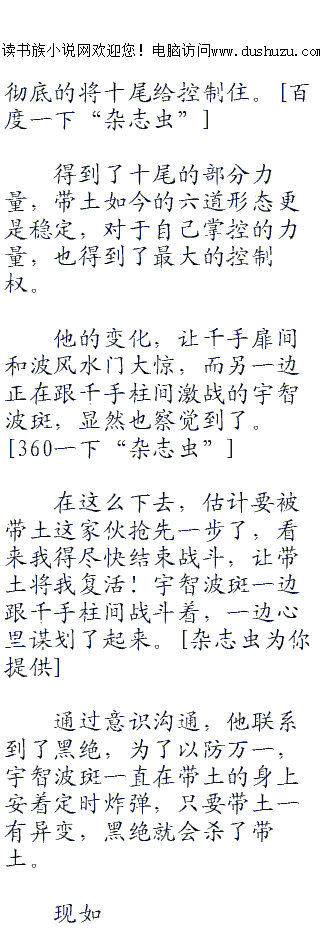 读书族小说网欢迎您！电脑访问www.dushuzu.com
彻底的将十尾给控制住。[百
度一下“杂志虫”]
得到了十尾的部分力
量，带土如今的六道形态更
是稳定，对于自己掌控的力
量，也得到了最大的控制
权。
他的变化，让千手扉间
和波风水门大惊，而另一边
正在跟千手柱间激战的宇智
波斑，显然也察觉到了。
[360一下“杂志虫”]
在这么下去，估计要被
带土这家伙抢先一步了，看
来我得尽快结束战斗，让带
土将我复活！宇智波斑一边
跟千手柱间战斗着，一边心
里谋划了起来。[杂志虫为你
提供]
通过意识沟通，他联系
到了黑绝，为了以防万一，
宇智波斑一直在带土的身上
安着定时炸弹，只要带土一
有异变，黑绝就会杀了带
土。
现如